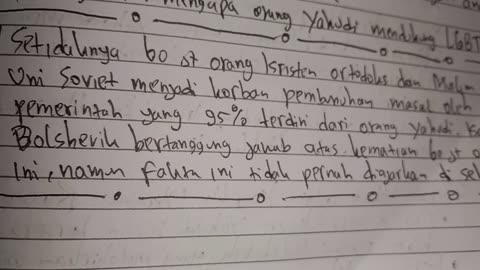 mengapa orang Yahudi mendukung LGBT
Setidaknya 60 jt orang kristen ortodoks dan
Uni Soviet menjadi korban pembunuhan masal oleh
pemerintah yang 95% terdiri dari orang yahudi.
Bolshevik bertanggung jawab atas kematian 60 jt
ini, namun fakta ini tidak pernah diajarkan di